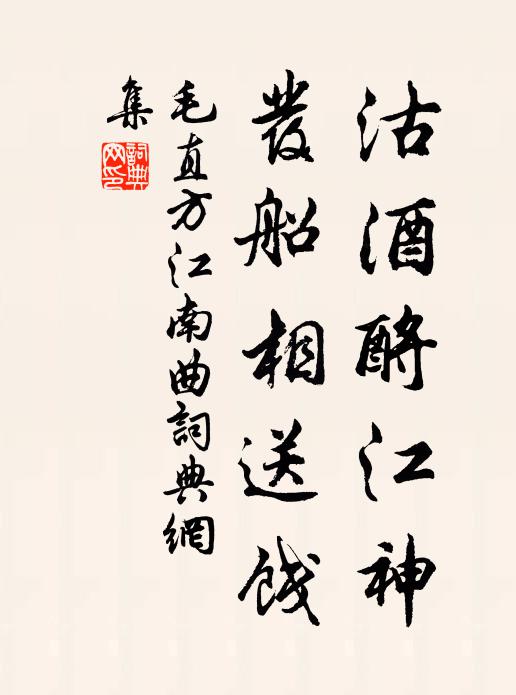 沽酒酹江神
發船相送餞
毛直方江南曲詞典網
集
詞典網印